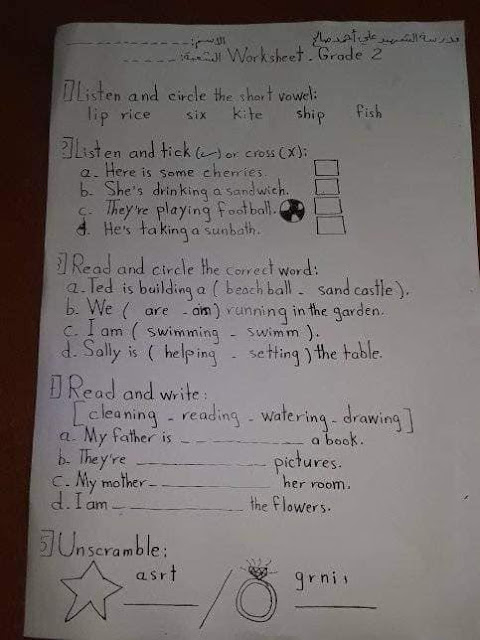 مدرسة الشهيد علي أحمد صالح
الاسم: ----------------
Worksheet - Grade 2 الشعبة: -----
1 Listen and circle the short vowel:
lip rice six kite ship fish
2 Listen and tick (✓) or cross (X):
a. Here is some cherries.
b. She's drinking a sandwich.
c. They're playing football.
d. He's taking a sunbath.
3 Read and circle the correct word:
a. Ted is building a ( beach ball - sand castle ).
b. We ( are - am ) running in the garden.
c. I am ( swimming - swimm ).
d. Sally is ( helping - setting ) the table.
4 Read and write:
[ cleaning - reading - watering - drawing ]
a. My father is __________ a book.
b. They're __________ pictures.
c. My mother __________ her room.
d. I am __________ the flowers.
5 Unscramble:
asrt / grni